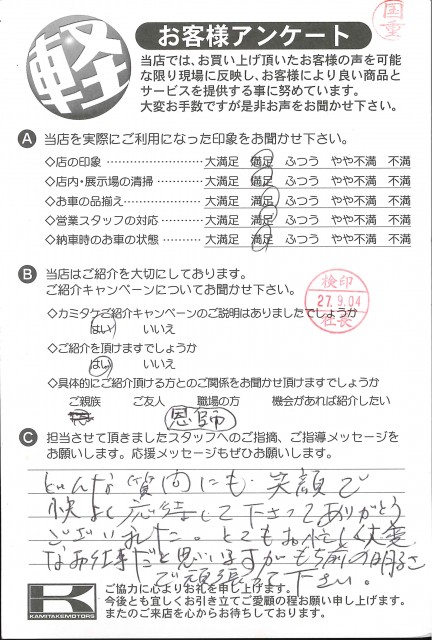 軽
お客様アンケート
当店では、お買い上げ頂いたお客様の声を可能
な限り現場に反映し、お客様により良い商品と
サービスを提供する事に努めています。
大変お手数ですが是非お声をお聞かせ下さい。
A 当店を実際にご利用になった印象をお聞かせ下さい。
◇店の印象 ………………… 大満足 満足 ふつう やや不満 不満
◇店内・展示場の清掃 ………… 大満足 満足 ふつう やや不満 不満
◇お車の品揃え ……………… 大満足 満足 ふつう やや不満 不満
◇営業スタッフの対応 ………… 大満足 満足 ふつう やや不満 不満
◇納車時のお車の状態 ………… 大満足 満足 ふつう やや不満 不満
B 当店はご紹介を大切にしております。
ご紹介キャンペーンについてお聞かせ下さい。
検印
27.9.04
社長
◇カミタケご紹介キャンペーンのご説明はありましたでしょうか
はい いいえ
◇ご紹介を頂けますでしょうか
はい いいえ
◇具体的にご紹介頂ける方とのご関係をお聞かせ頂けますでしょうか
ご親族 ご友人 職場の方 機会があれば紹介したい
恩師
C 担当させて頂きましたスタッフへのご指摘、ご指導メッセージを
お願いします。応援メッセージもぜひお願いします。
どんな質問にも笑顔で
快よく応対して下さってありがとう
ございました。とてもお忙しく大変
なお仕事だと思いますがもち前の明るさ
で頑張って下さい。
K
KAMITAKEMOTORS
ご協力に心よりお礼を申し上げます。
今後とも宜しくお引き立てご愛顧の程お願い申し上げます。
またのご来店を心からお待ちしております。